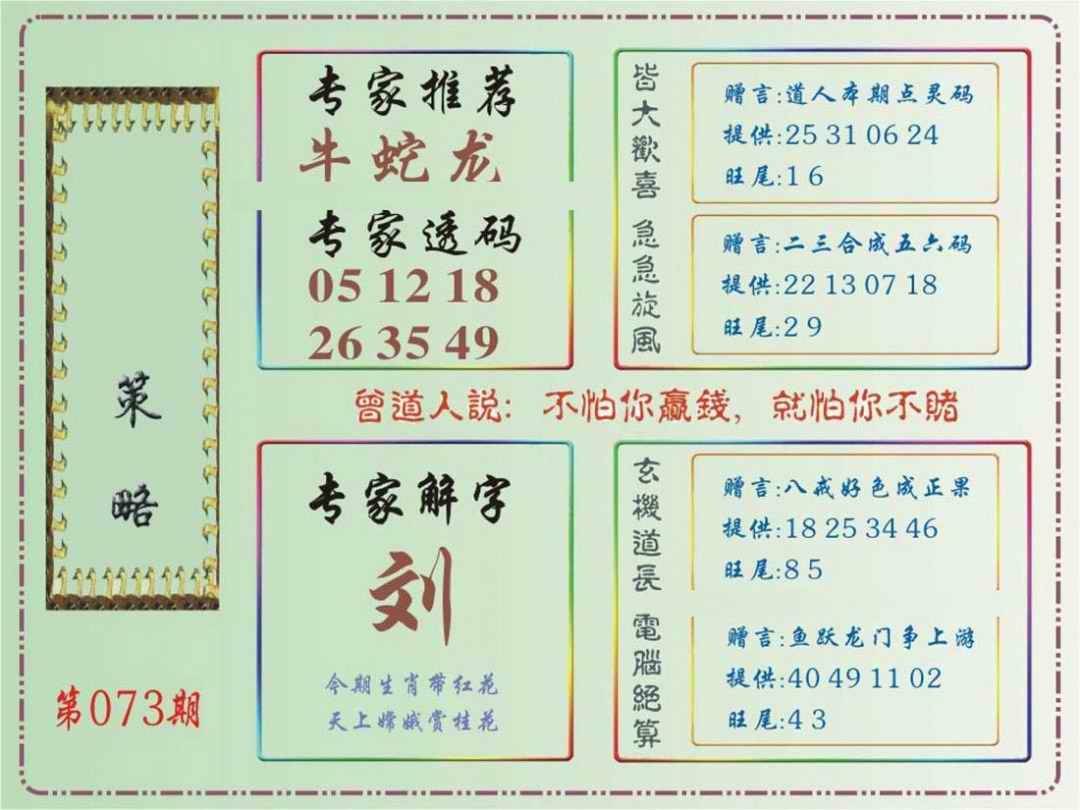 策
略
第073期
专家推荐
牛蛇龙
专家透码
05 12 18
26 35 49
皆大歡喜
赠言:道人本期点灵码
提供:25 31 06 24
旺尾:1 6
急急旋風
赠言:二三合成五六码
提供:22 13 07 18
旺尾:2 9
曾道人説: 不怕你贏錢, 就怕你不賭
专家解字
刘
今期生肖带红花
天上嫦娥赏桂花
玄機道長
赠言:八戒好色成正果
提供:18 25 34 46
旺尾:8 5
電腦絕算
赠言:鱼跃龙门争上游
提供:40 49 11 02
旺尾:4 3